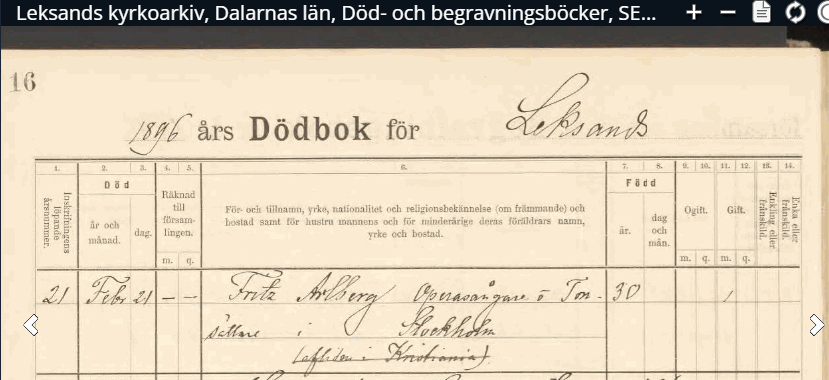 Leksands kyrkoarkiv, Dalarnas län, Död- och begravningsböcker, SE...
16
1896 års Dödbok för Leksands
1. 2. 3. 4. 5. 6. 7. 8. 9. 10. 11. 12. 13. 14.
Inskrifningens löpande årsnummer.
Död
år och månad.
dag.
Räknad till försam-lingen.
m. q.
För- och tillnamn, yrke, nationalitet och religionsbekännelse (om främmande) och
bostad samt för hustru mannens och för minderårige deras föräldrars namn,
yrke och bostad.
Född
år.
dag och mån.
Ogift.
m. q.
Gift.
m. q.
Enkling eller frånskild.
Enka eller frånskild.
21 Febr 21 – – Fritz Arlberg Operasångare o Ton- 30 1
sättare i Stockholm
(afliden i Kristiania)